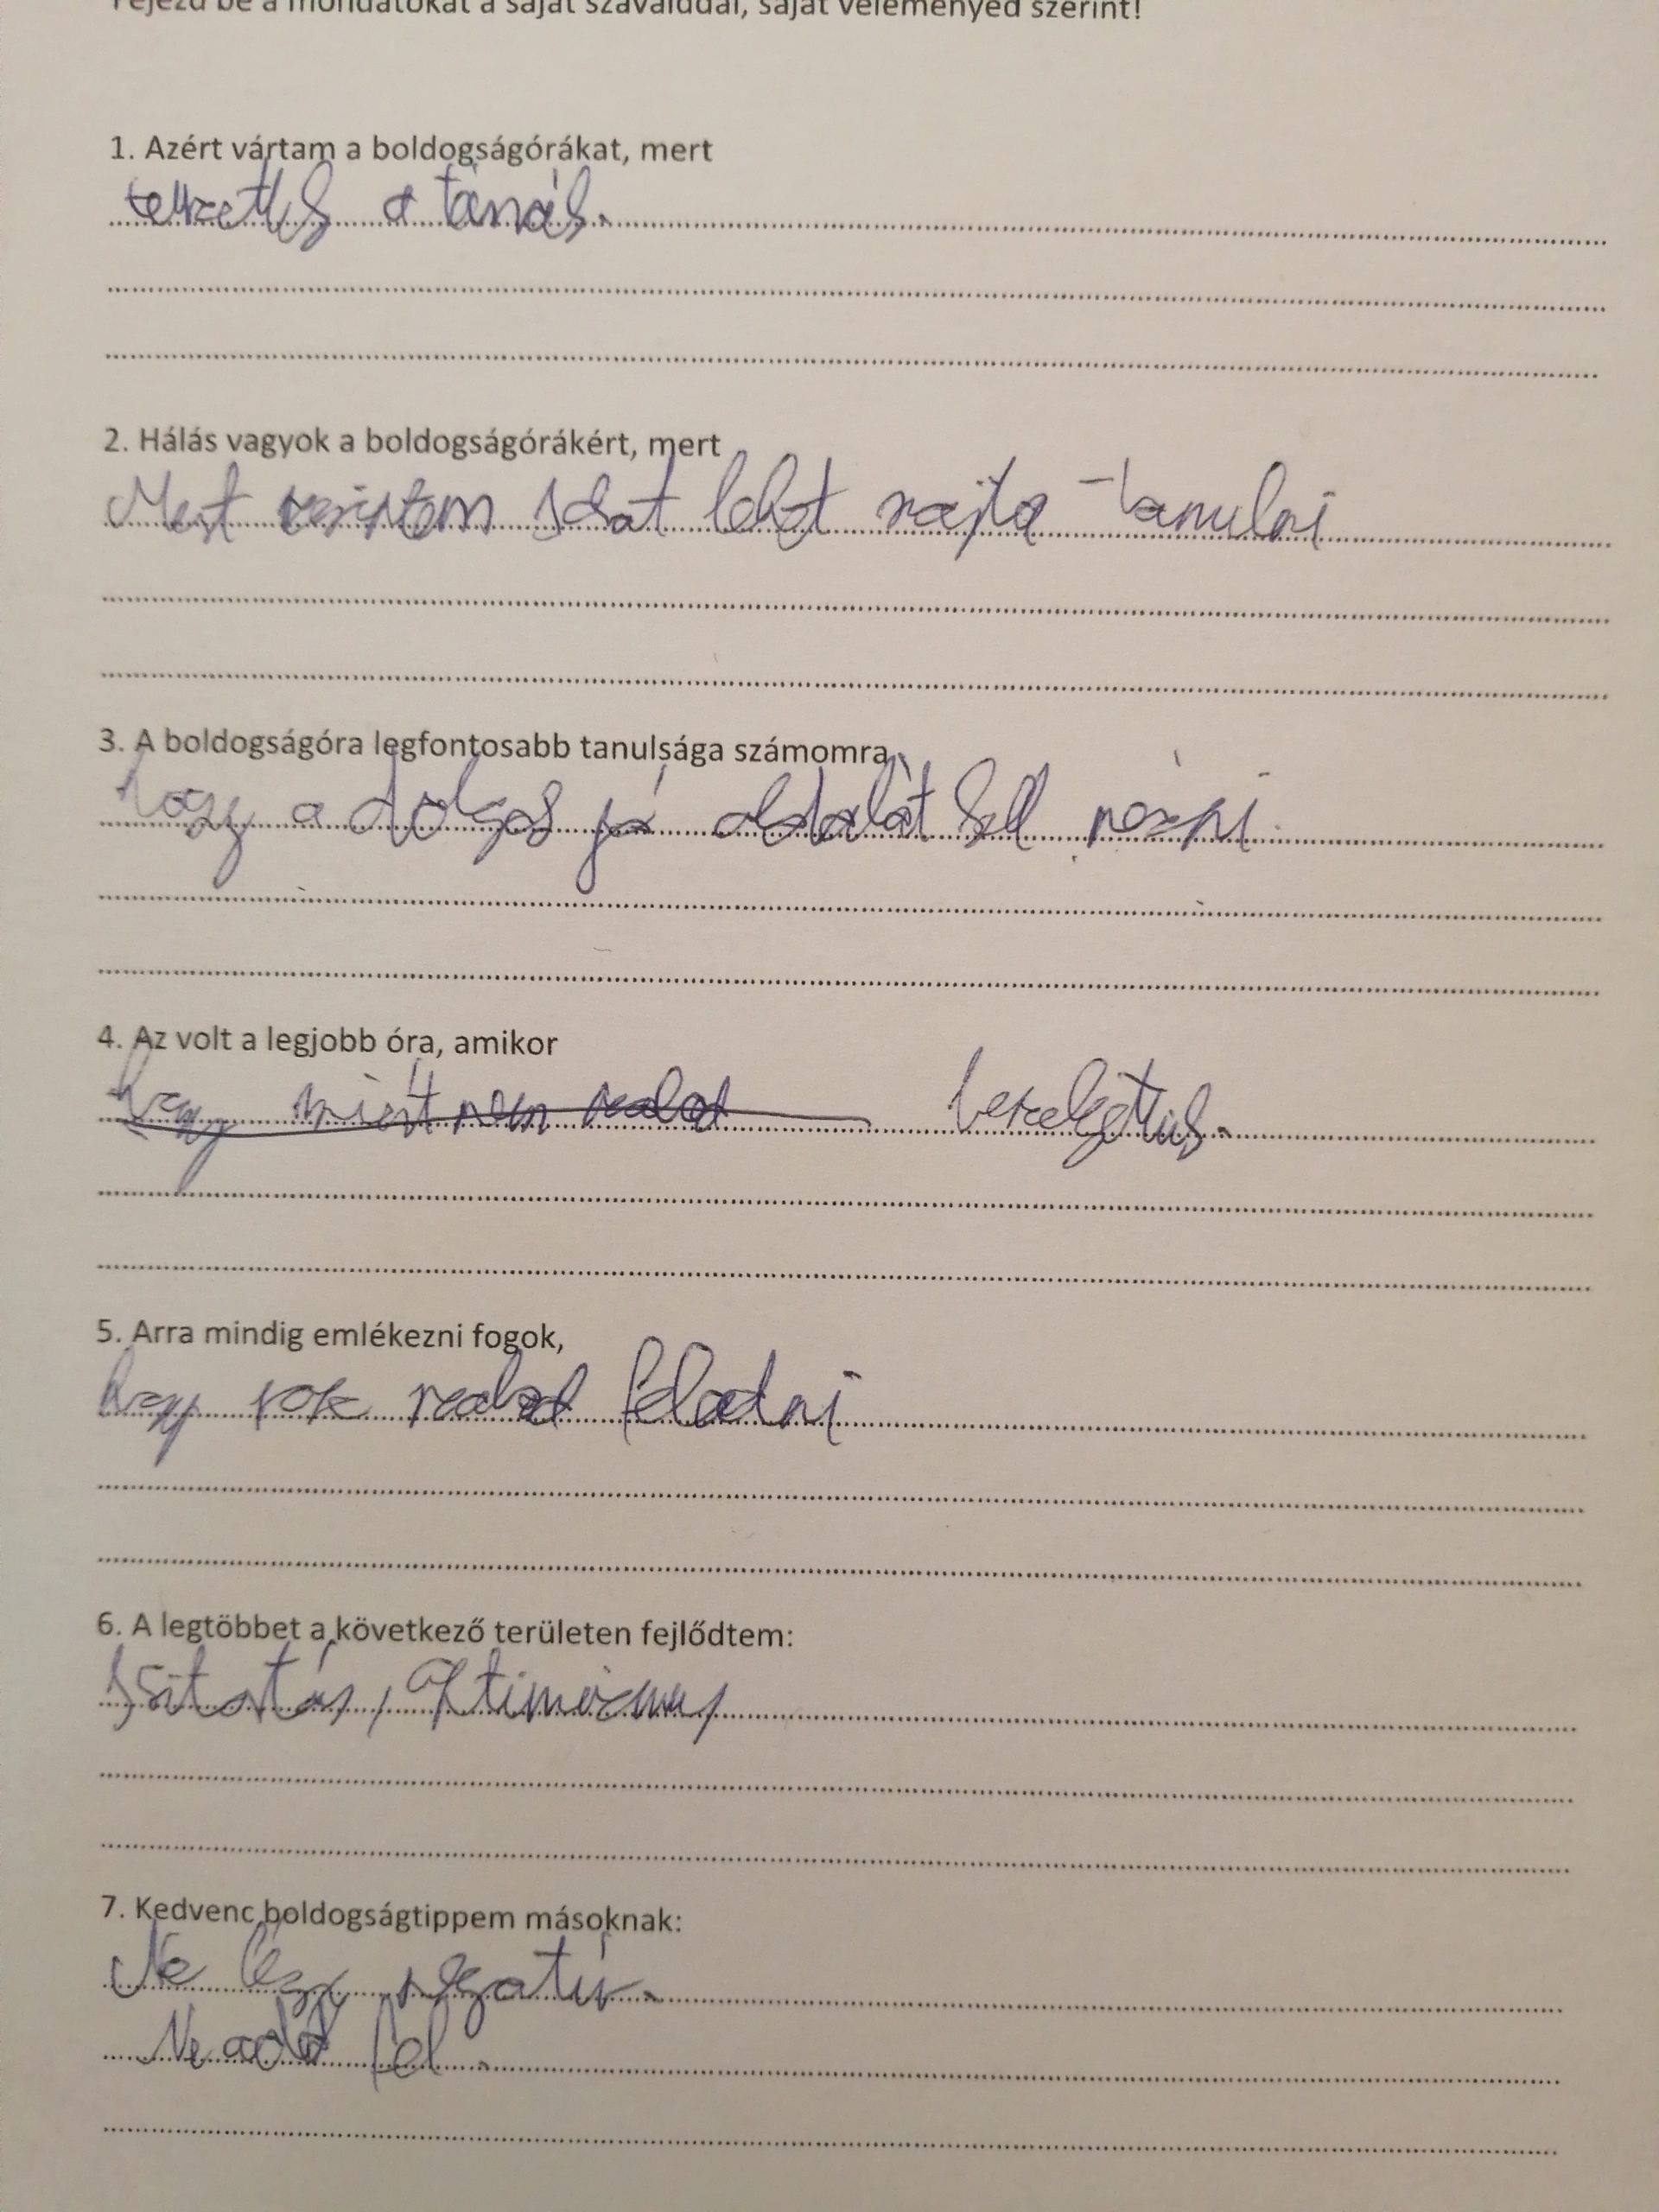 Fejezd be a mondatokat a saját szavaiddal, saját véleményed szerint!
1. Azért vártam a boldogságórákat, mert
a tanás.
2. Hálás vagyok a boldogságórákért, mert
Mert lehet rajta tanulni
3. A boldogságóra legfontosabb tanulsága számomra,
hogy a dolgos jó oldalát kell nézni.
4. Az volt a legjobb óra, amikor
hogy miért nem szabad
5. Arra mindig emlékezni fogok,
hogy szabad feladni
6. A legtöbbet a következő területen fejlődtem:
7. Kedvenc boldogságtippem másoknak:
Ne légy negatív.
Ne add fel.